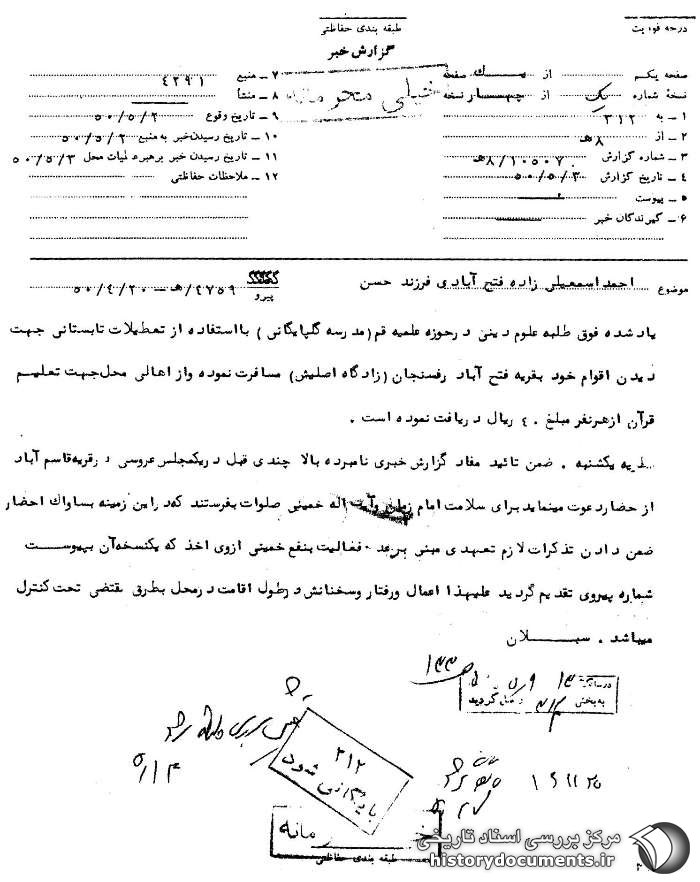 درجه فوریت
طبقه بندی حفاظتی
گزارش خبر
صفحه یکم از یک صفحه
نسخه شماره یک از چهار نسخه
۱ ـ به ۳۱۲
۲ ـ از ۸ هـ
۳ ـ شماره گزارش ۱۰۵۰۷/۸هـ
۴ ـ تاریخ گزارش ۵۰/۵/۳
۵ ـ پیوست
۶ ـ گیرندگان خبر
۷ ـ منبع ۴۲۹۱
۸ ـ منشأ
۹ ـ تاریخ وقوع ۵۰/۵/۲
۱۰ ـ تاریخ رسیدن خبر به منبع ۵۰/۵/۲
۱۱ ـ تاریخ رسیدن خبر برهبر عملیات محل ۵۰/۵/۳
۱۲ ـ ملاحظات حفاظتی
خیلی محرمانه
موضوع احمد اسمعیلی زاده فتح آبادی فرزند حسن
پیرو ۴۷۵۹/هـ - ۵۰/۴/۲۰
یاد شده فوق طلبه علوم دینی در حوزه علمیه قم (مدرسه گلپایگانی) با استفاده از تعطیلات تابستانی جهت
دیدن اقوام خود بقریه فتح آباد رفسنجان (زادگاه اصلیش) مسافرت نموده واز اهالی محل جهت تعلیم
قرآن از هر نفر مبلغ ۴۰ ریال دریافت نموده است.
نظریه یکشنبه. ضمن تائید مفاد گزارش خبری نامبرده بالا چندی قبل در یکمجلس عروسی در قریه قاسم آباد
از حضار دعوت مینماید برای سلامت امام زمان وآیت اله خمینی صلوات بفرستند که در این زمینه بساواک احضار
ضمن دادن تذکرات لازم تعهدی مبنی بر عدم فعالیت بنفع خمینی ازوی اخذ که یکنسخه آن بپیوست
شماره پیروی تقدیم گردید علیهذا اعمال ورفتار وسخنانش در طول اقامت در محل بطرق مقتضی تحت کنترل
میباشد. سبلان
به بخش ۳۱۲ گردید
۳۱۲
بایگانی شود
۵/۱۴
طبقه بندی حفاظتی
مرکز بررسی اسناد تاریخی
historydocuments.ir